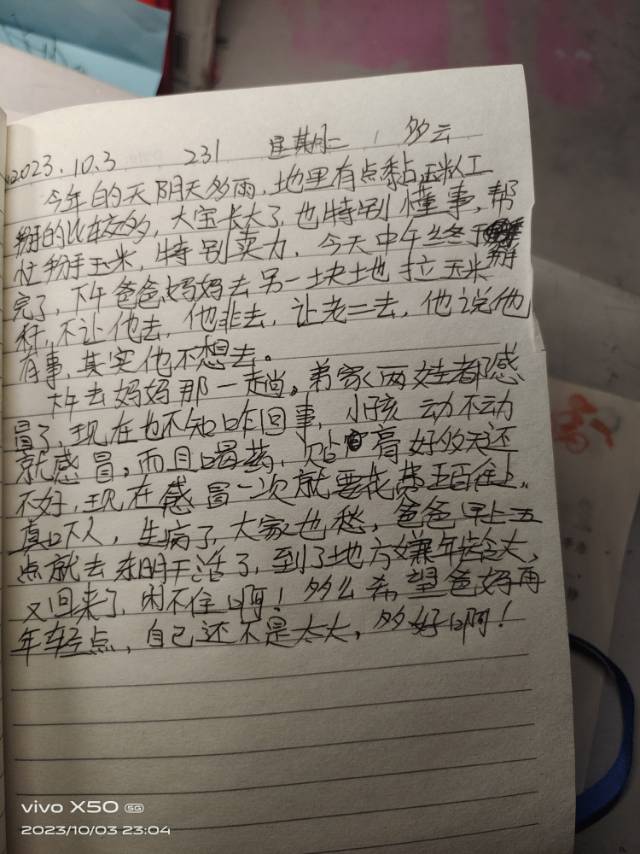 2023.10.3 231 星期二 多云
今年的天阴天多雨,地里有点黏,玉米人工
掰的比较多,大宝长大了,也特别懂事,帮
忙掰玉米,特别卖力,今天中午终于掰
完了,下午爸爸妈妈去另一块地拉玉米
秆,不让他去,他非去,让老二去,他说他
有事,其实他不想去。
下午去妈妈那一趟。弟家两娃都感
冒了,现在也不知咋回事,小孩动不动
就感冒,而且喝药,贴膏好多天还
不好,现在感冒一次就要花费五百往上,
真吓人,生病了,大家也愁,爸爸早上五
点就去东明干活了,到了地方嫌年龄大,
又回来了,闲不住啊!多么希望爸妈再
年轻点,自己还不是太大,多好啊!
vivo X50 5G
2023/10/03 23:04